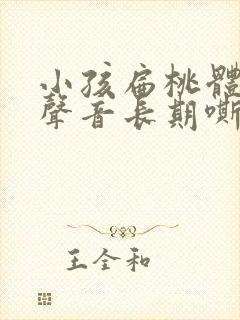 小孩扁桃體
聲音長期嘶
王全和